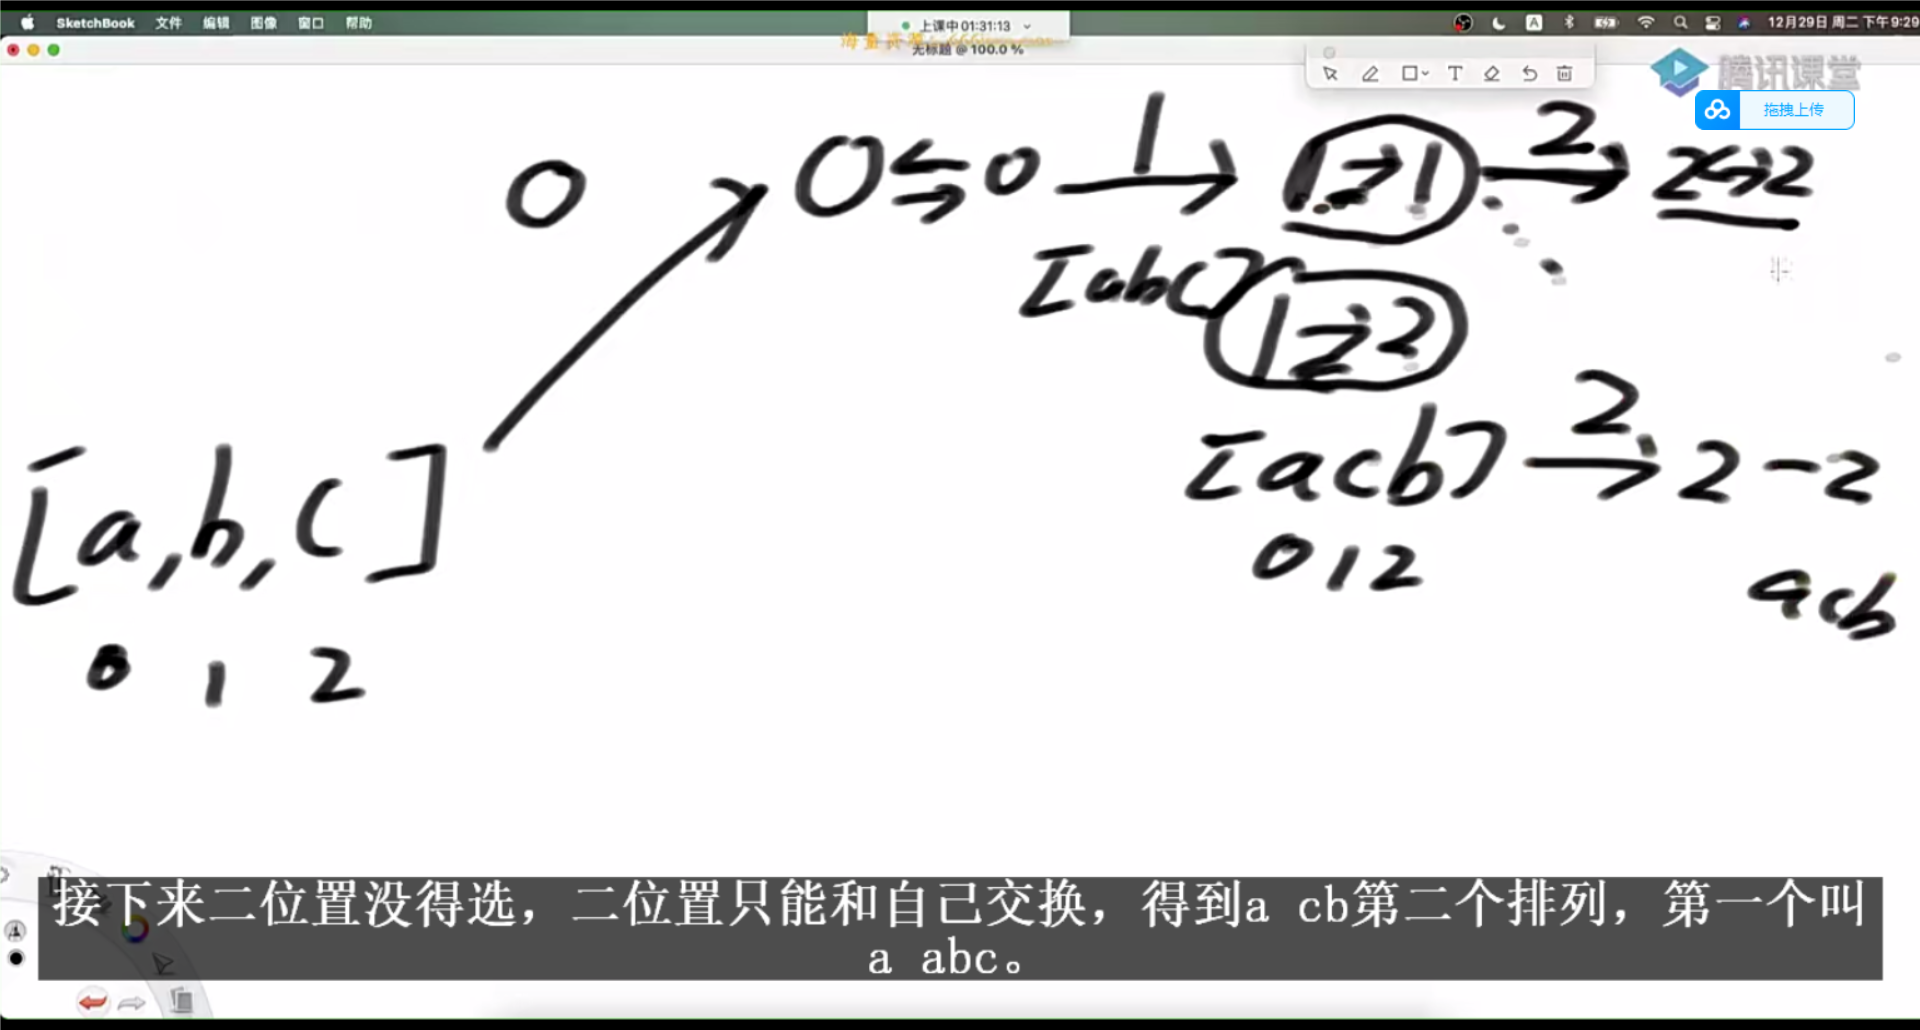 SketchBook 文件 编辑 图像 窗口 帮助
上课中 01:31:13
12月29日 周二 下午9:29
无标题 @ 100.0 %
腾讯课堂
拖拽上传
0 0⇆0 1 1⇄1 2 2↔2
[abc]
1⇄2
[acb] 2 2-2
0 1 2
acb
[a,b,c]
0 1 2
接下来二位置没得选，二位置只能和自己交换，得到a cb第二个排列，第一个叫
a abc。